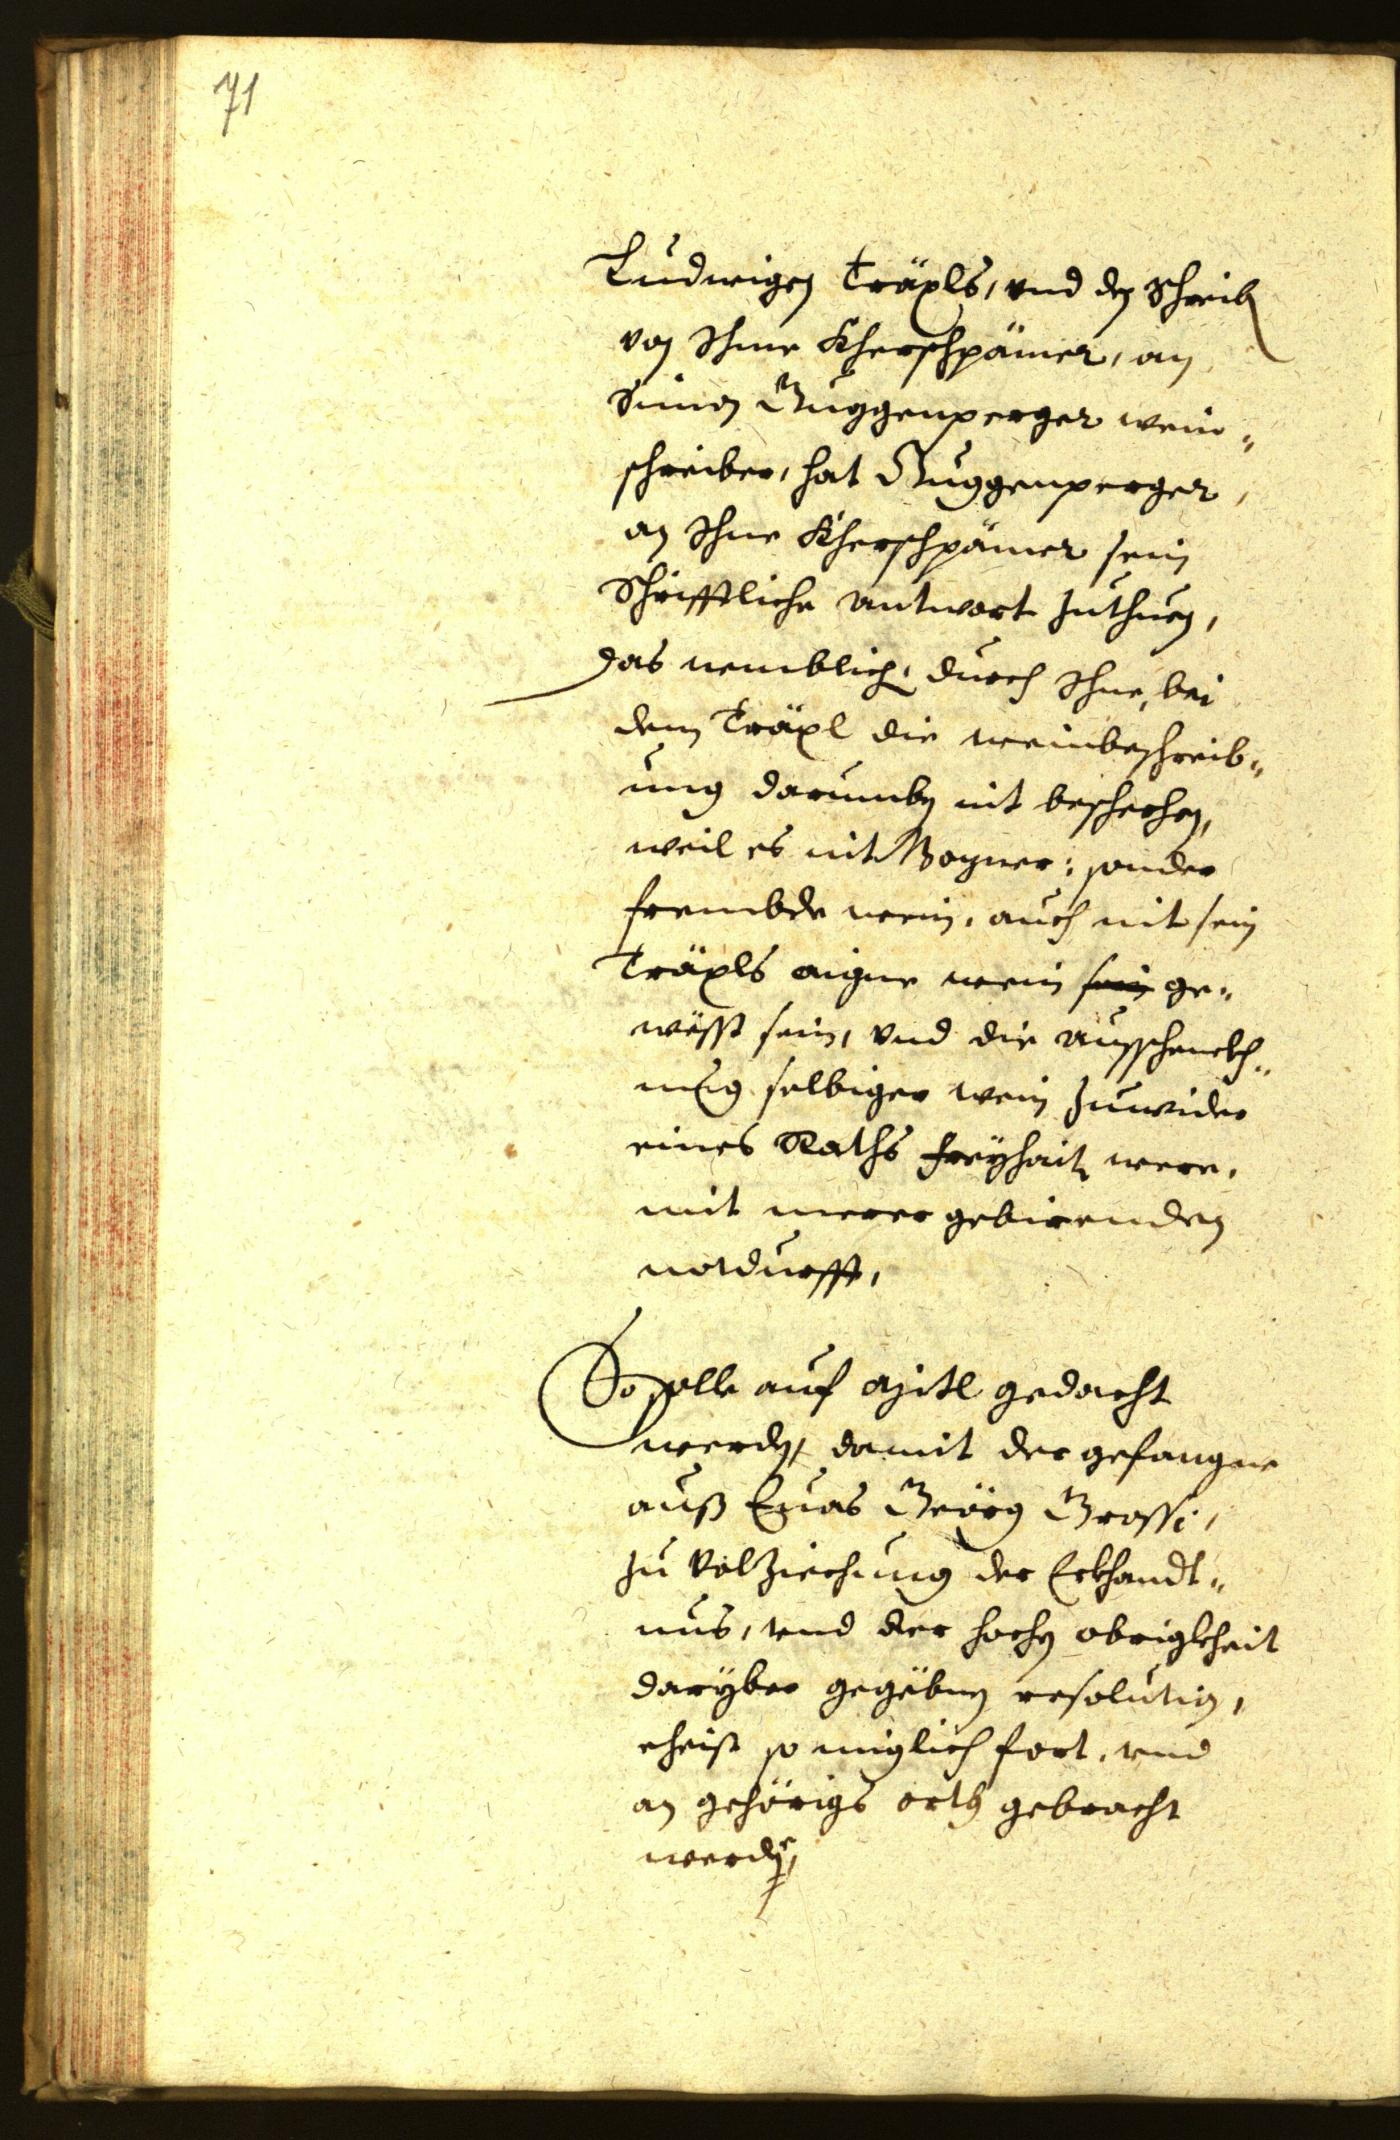 71
Ludwigen Träxls, vnd den Schreib
von Ihme Kherschpämer, an
Simon Guggenperger wein„
schreiber, hat Guggenperger,
an Ihne Kherschpämer sein
Schrifftliche antwort zuthuen,
das nemblich, durch Ihne, bei
dem Träxl die weinbeschreib„
ung darumben nit beschechen,
weil es nit Bozner: sonder
frembde wein, auch nit sein
Träxls aigne wein sein ge„
wesst sein, vnd die ausschenckh„
ung selbiger wein zuwider
eines Raths freyhait were,
mit merer gebirenden
notdurfft,
So solle auf mitl gedacht
werden, damit der gefangne
auß Euas Geörg Grossi,
zu volziechung der Erkhandt„
nus, vnd der hochen obrigkheit
daryber gegebnen resolution,
eheist so miglich fort, vnd
an gehörigs orth gebracht
werde,